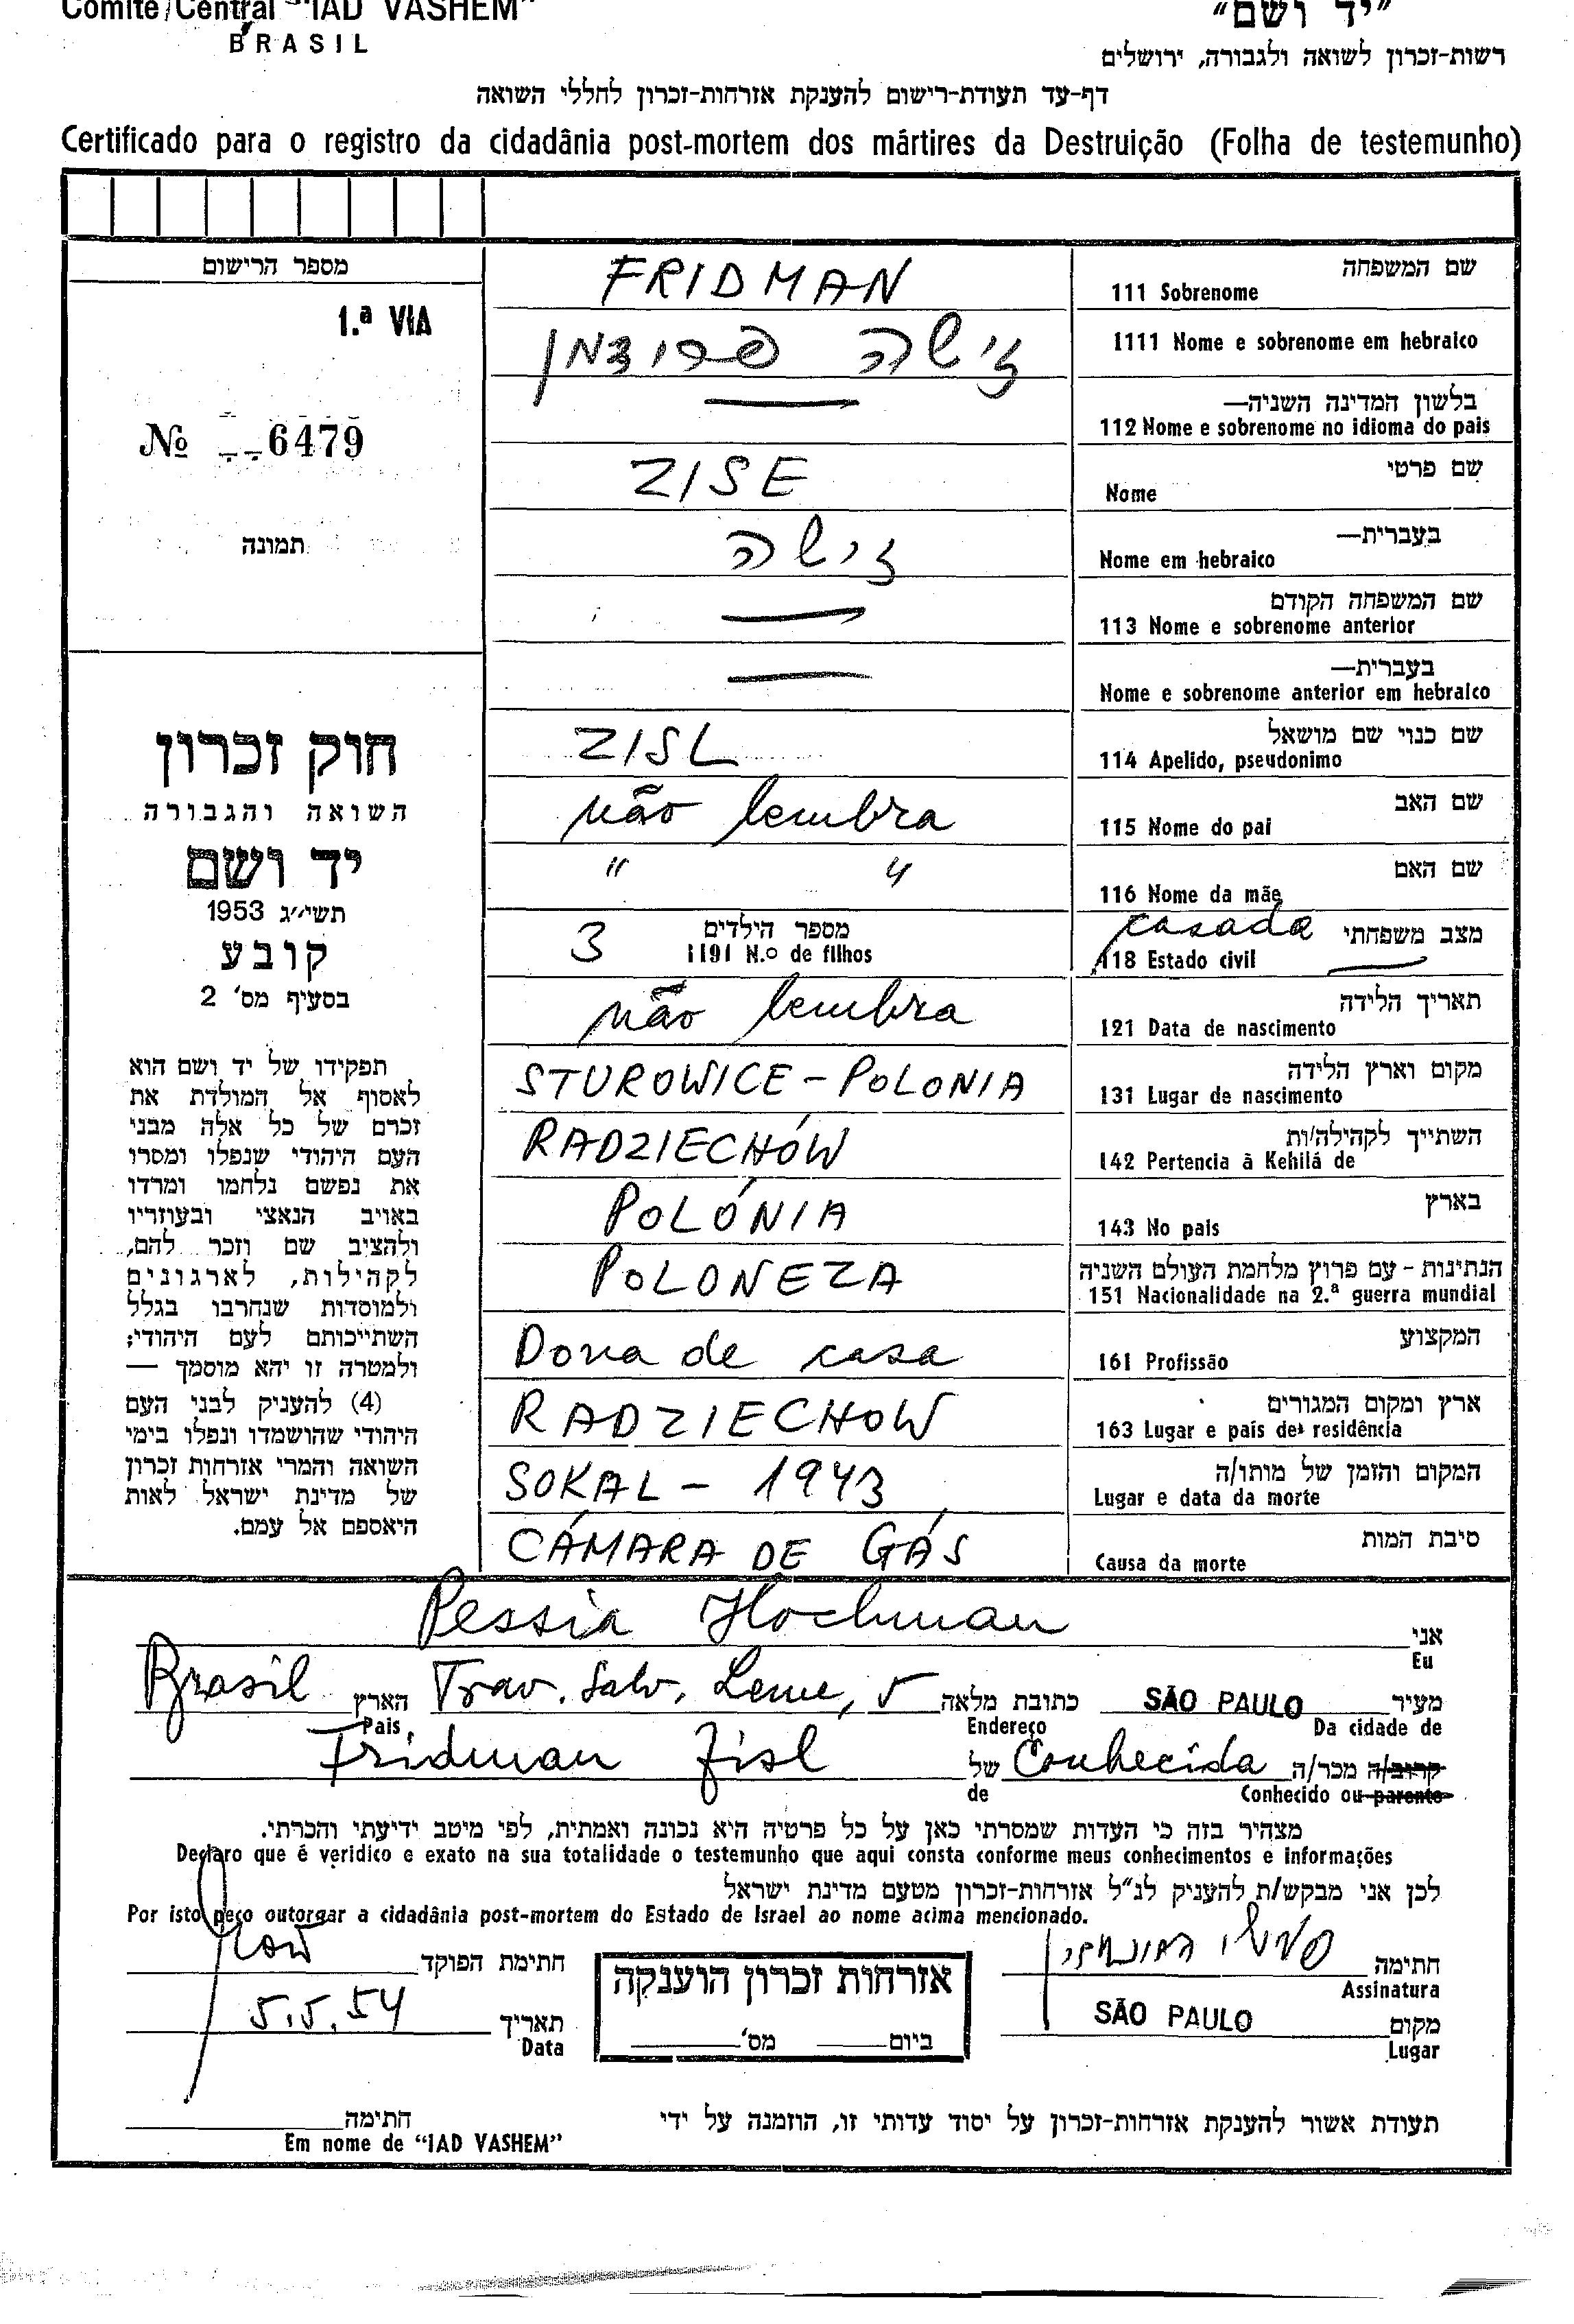 Comitê Central "IAD VASHEM"
BRASIL
"יד ושם"
רשות-זכרון לשואה ולגבורה, ירושלים
דף-עד תעודת-רישום להענקת אזרחות-זכרון לחללי השואה
Certificado para o registro da cidadânia post-mortem dos mártires da Destruição (Folha de testemunho)
מספר הרישום
1.ª VIA
№ 6479
תמונה
חוק זכרון
השואה והגבורה
יד ושם
תשי״ג 1953
קובע
בסעיף מס' 2
תפקידו של יד ושם הוא
לאסוף אל המולדת את
זכרם של כל אלה מבני
העם היהודי שנפלו ומסרו
את נפשם נלחמו ומרדו
באויב הנאצי ובעוזריו
ולהציב שם וזכר להם,
לקהילות, לארגונים
ולמוסדות שנחרבו בגלל
השתייכותם לעם היהודי;
ולמטרה זו יהא מוסמך —
(4) להעניק לבני העם
היהודי שהושמדו ונפלו בימי
השואה והמרי אזרחות זכרון
של מדינת ישראל לאות
היאספם אל עמם.
שם המשפחה
111 Sobrenome FRIDMAN
1111 Nome e sobrenome em hebraico זישה פרידמן
בלשון המדינה השניה—
112 Nome e sobrenome no idioma do pais —
שם פרטי
Nome ZISE
בעברית—
Nome em hebraico זישה
שם המשפחה הקודם
113 Nome e sobrenome anterior —
בעברית—
Nome e sobrenome anterior em hebraico —
שם כנוי שם מושאל
114 Apelido, pseudonimo ZISL
שם האב
115 Nome do pai não lembra
שם האם
116 Nome da mãe " "
מצב משפחתי
118 Estado civil casada
מספר הילדים
1191 N.o de filhos 3
תאריך הלידה
121 Data de nascimento não lembra
מקום וארץ הלידה
131 Lugar de nascimento STUROWICE - POLONIA
השתייך לקהילה/ות
142 Pertencia à Kehilá de RADZIECHÓW
בארץ
143 No pais POLÓNIA
הנתינות - עם פרוץ מלחמת העולם השניה
151 Nacionalidade na 2.ª guerra mundial POLONEZA
המקצוע
161 Profissão Dona de casa
ארץ ומקום המגורים
163 Lugar e pais de residência RADZIECHOW
המקום והזמן של מותו/ה
Lugar e data da morte SOKAL - 1943
סיבת המות
Causa da morte CÁMARA DE GÁS
אני
Eu Pessia Hochman
מעיר SÃO PAULO כתובת מלאה Trav. Salv. Leme, 5 הארץ Brasil
Da cidade de Endereço Pais
קרוב/ה מכר/ה Conhecida של Fridman Zisl
Conhecido ou parente de
מצהיר בזה כי העדות שמסרתי כאן על כל פרטיה היא נכונה ואמתית, לפי מיטב ידיעתי והכרתי.
Declaro que é veridico e exato na sua totalidade o testemunho que aqui consta conforme meus conhecimentos e informações
לכן אני מבקש/ת להעניק לנ"ל אזרחות-זכרון מטעם מדינת ישראל
Por isto peço outorgar a cidadânia post-mortem do Estado de Israel ao nome acima mencionado.
חתימה
Assinatura
חתימת הפוקד
אזרחות זכרון הוענקה
ביום מס'
מקום SÃO PAULO
Lugar
תאריך 5.5.54
Data
תעודת אשור להענקת אזרחות-זכרון על יסוד עדותי זו, הוזמנה על ידי
חתימה
Em nome de "IAD VASHEM"